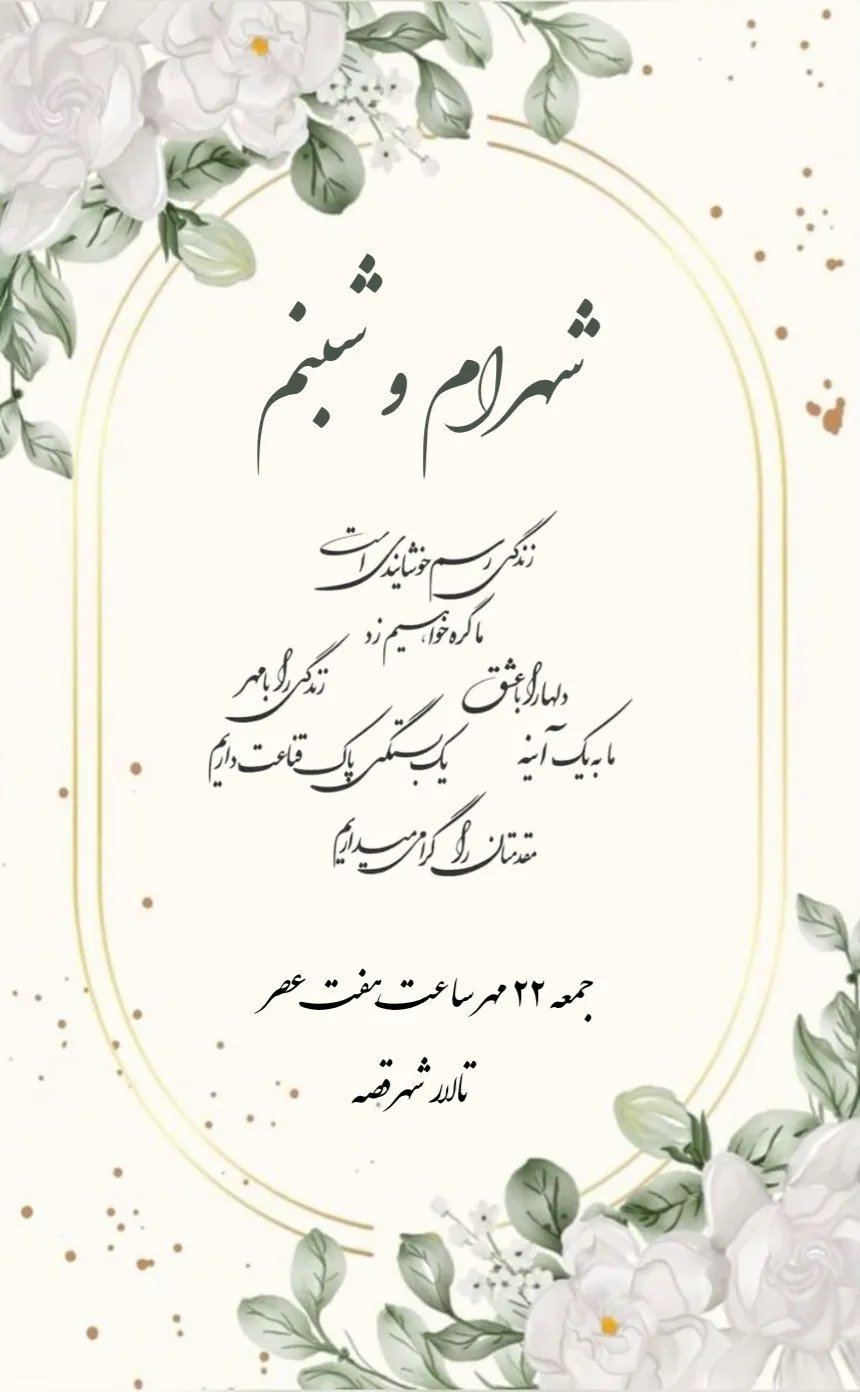 شهرام و شبنم
زندگی رسم خوشایندی است
ما گره خواهیم زد
دلها را با عشق زندگی را با مهر
ما به یک آینه یک بستگی پاک قناعت داریم
مقدمتان را گرامی میداریم
جمعه ۲۲ مهر ساعت هفت عصر
تالار شهر قصه